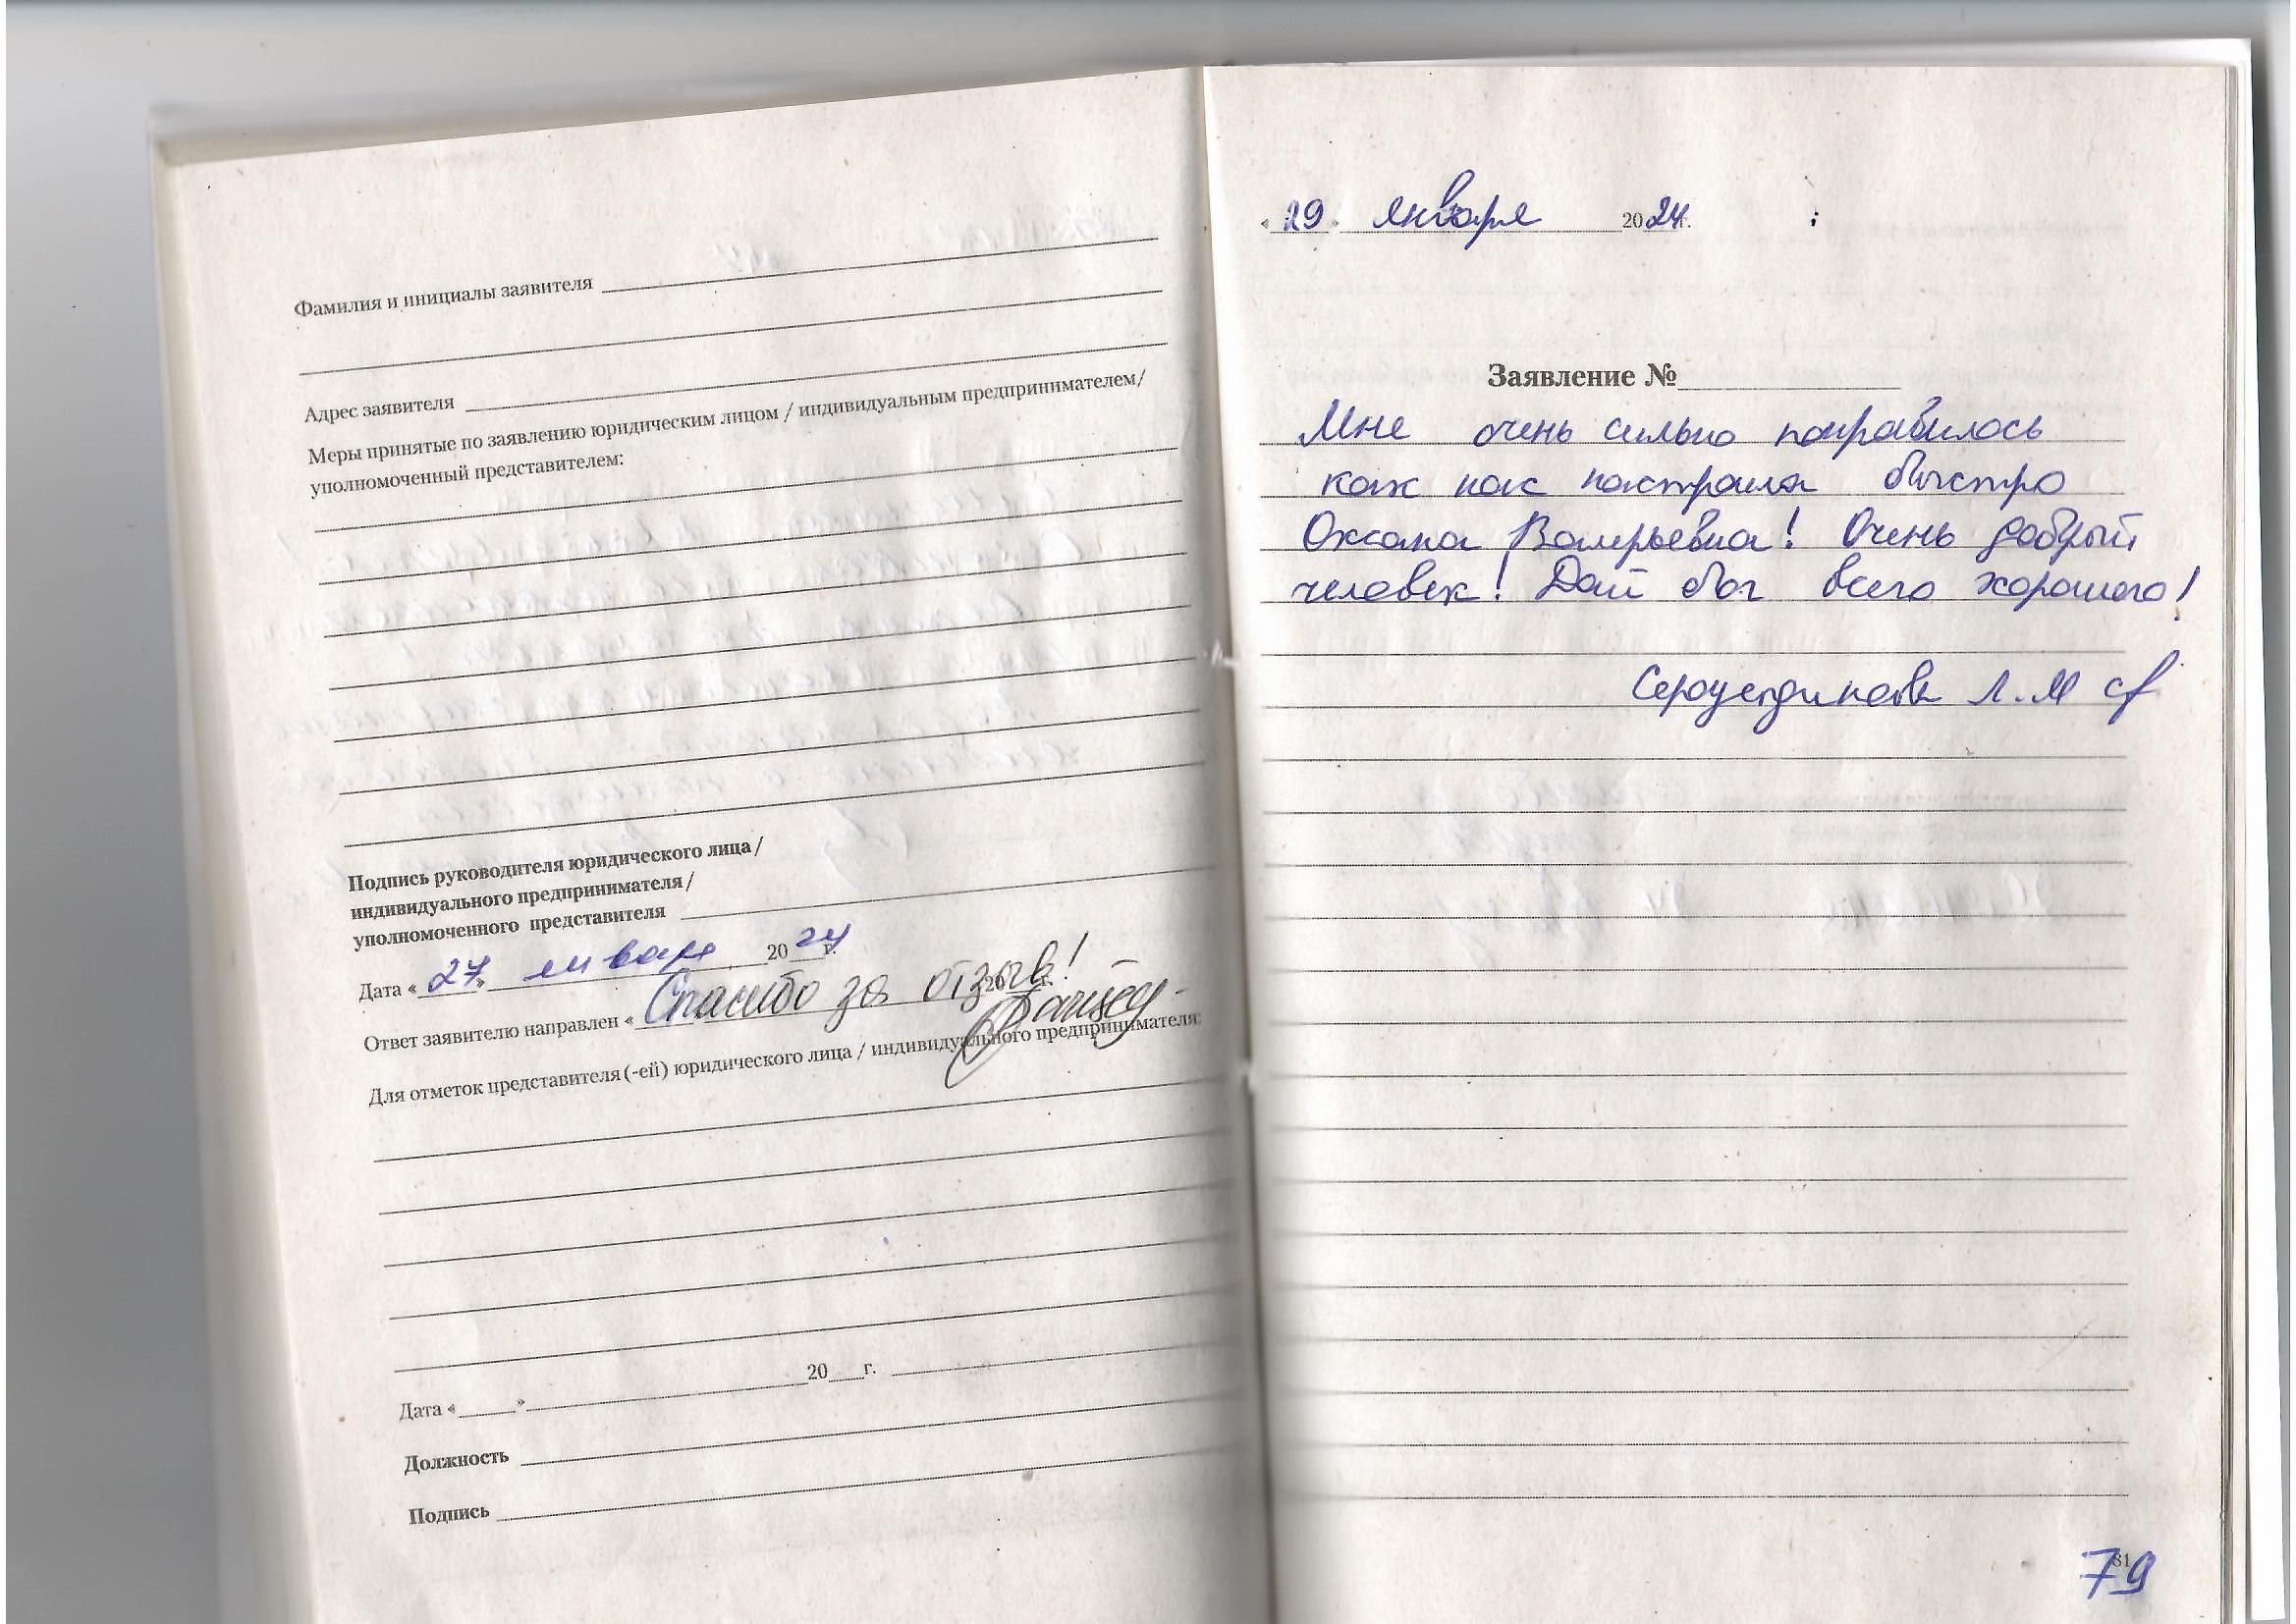 Фамилия и инициалы заявителя
Адрес заявителя
Меры принятые по заявлению юридическим лицом / индивидуальным предпринимателем/
уполномоченный представителем:
Подпись руководителя юридического лица /
индивидуального предпринимателя /
уполномоченного представителя
Дата « 27 » января 2024 г.
Ответ заявителю направлен « Спасибо за отзыв! 20 г.
Для отметок представителя (-ей) юридического лица / индивидуального предпринимателя:
Дата « » 20 г.
Должность
Подпись
« 29 » января 2024 г.
Заявление №
Мне очень сильно понравилось
как нас настроила быстро
Оксана Валерьевна! Очень добрый
человек! Дай бог всего хорошего!
Л.М
79